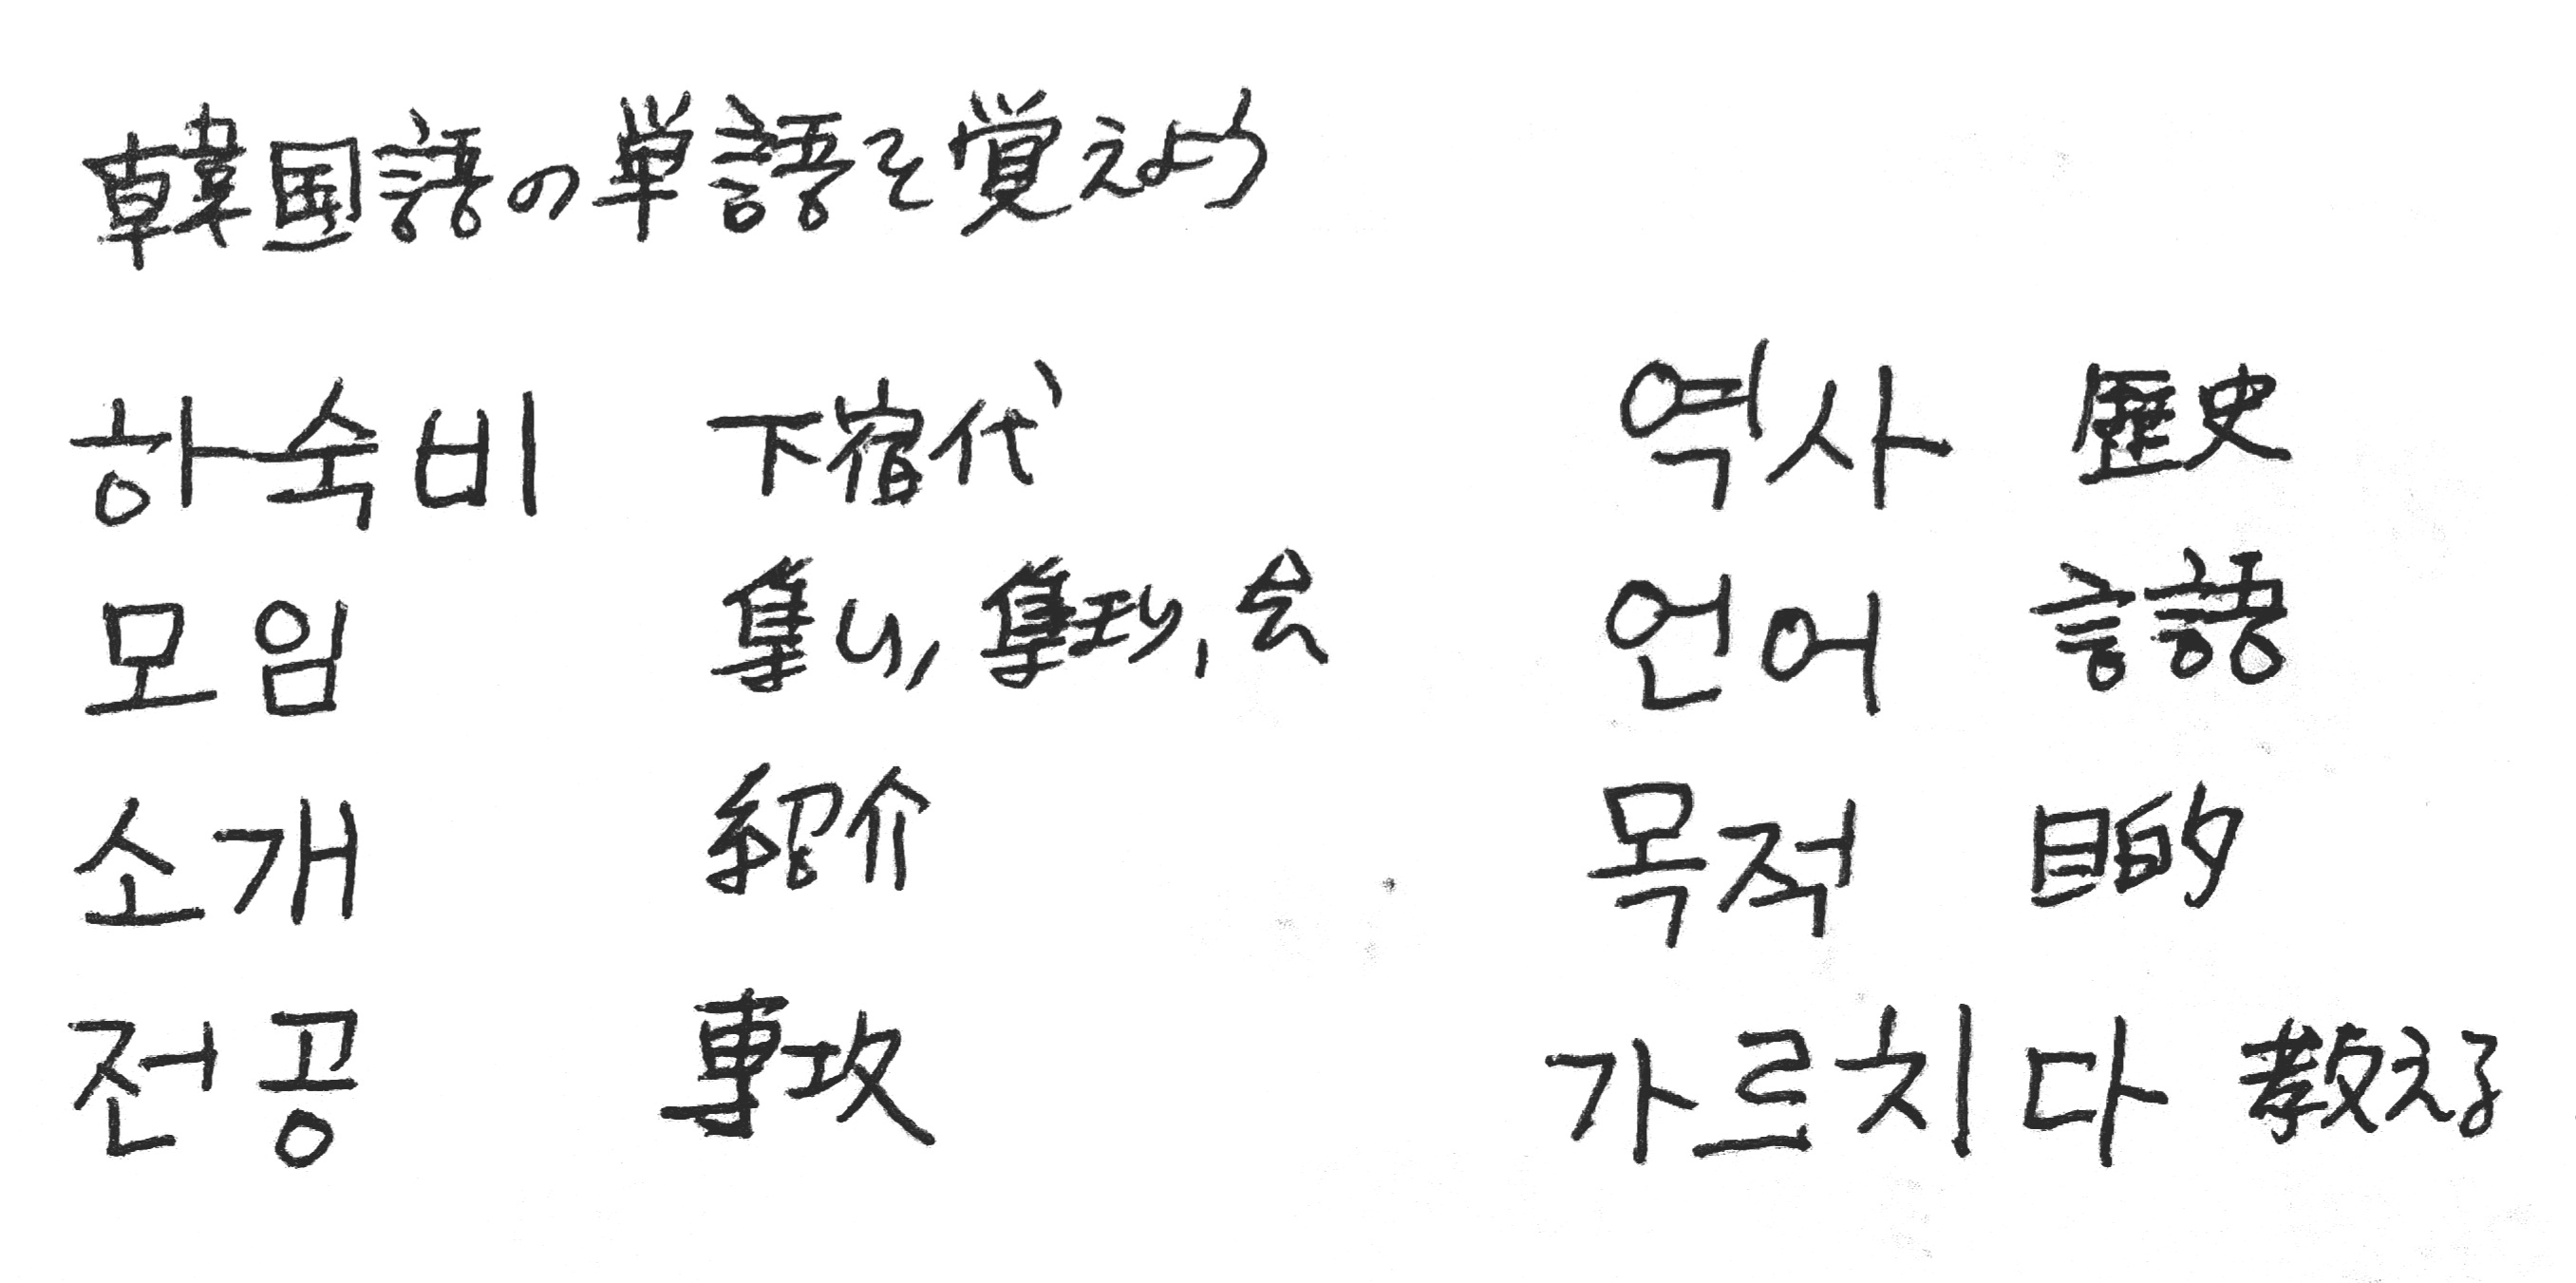 韓国語の単語を覚えよう
하숙비 下宿代
모임 集い, 集まり, 会
소개 紹介
전공 専攻
역사 歴史
언어 言語
목적 目的
가르치다 教える